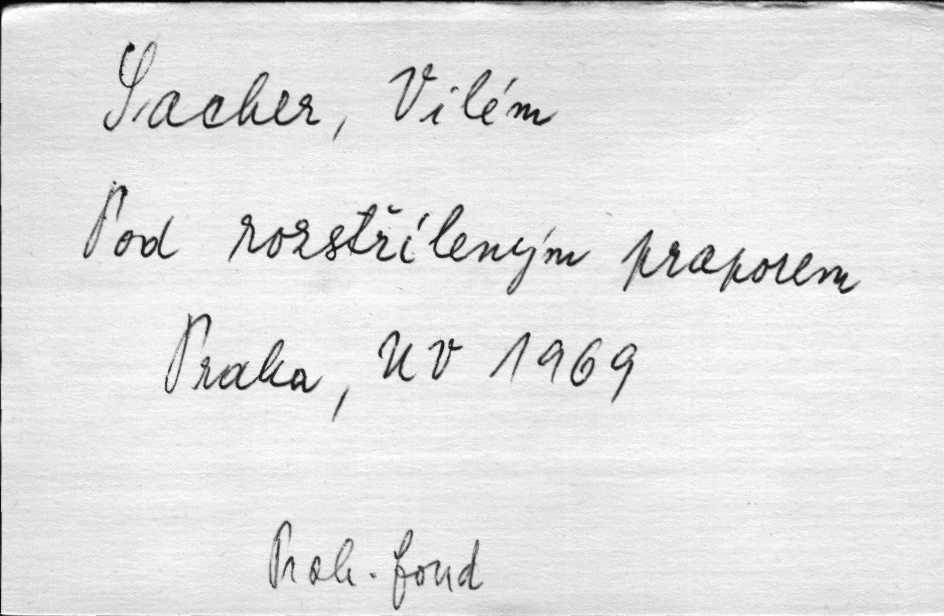 Sacher, Vilém
Pod rozstříleným praporem
Praha, NV 1969
Proh. fond